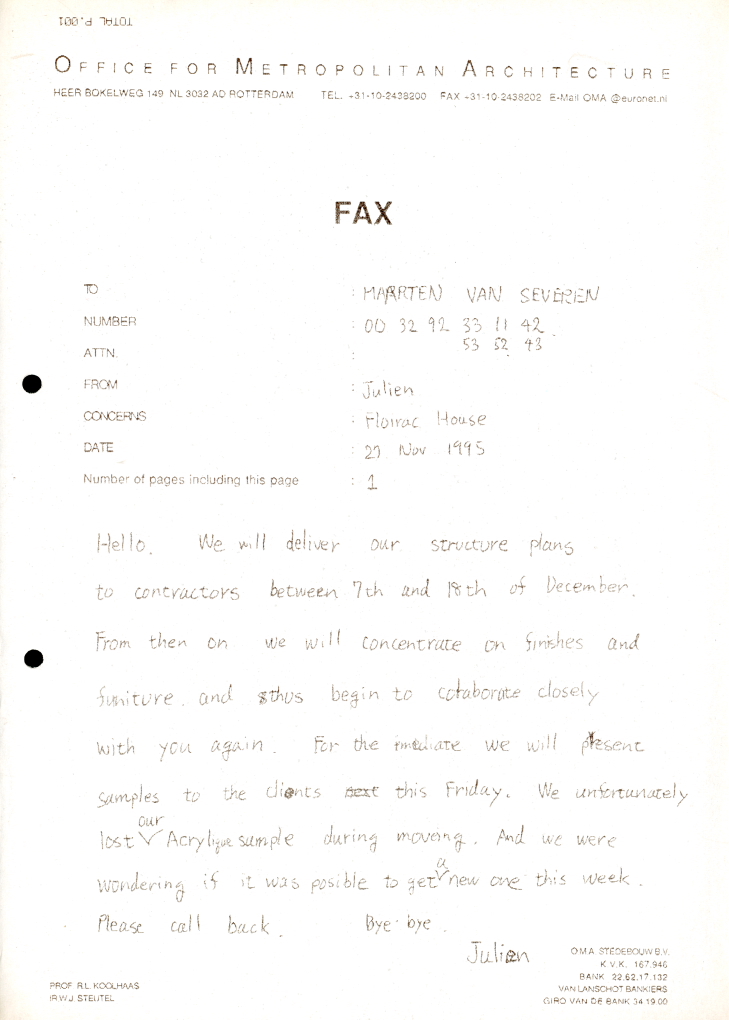 TOTAL P.001
OFFICE FOR METROPOLITAN ARCHITECTURE
HEER BOKELWEG 149 NL 3032 AD ROTTERDAM TEL. +31-10-2438200 FAX +31-10-2438202 E-Mail OMA @euronet.nl
FAX
TO : MAARTEN VAN SEVEREN
NUMBER : 00 32 92 33 11 42
53 52 43
ATTN. :
FROM : Julien
CONCERNS : Floirac House
DATE : 27 Nov 1995
Number of pages including this page : 1
Hello. We will deliver our structure plans
to contractors between 7th and 18th of December.
From then on we will concentrate on finishes and
funiture and thus begin to colaborate closely
with you again. For the imediate we will present
samples to the clients next this Friday. We unfortunately
our
lost Acrylique sample during moveing. And we were
a
wondering if it was posible to get new one this week.
Please call back. Bye bye.
Julien
OMA STEDEBOUW B.V.
K.V.K. 167.946
BANK 22.62.17.132
VAN LANSCHOT BANKIERS
GIRO VAN DE BANK 34 19 00
PROF. R.L. KOOLHAAS
IR.W.J. STEUTEL